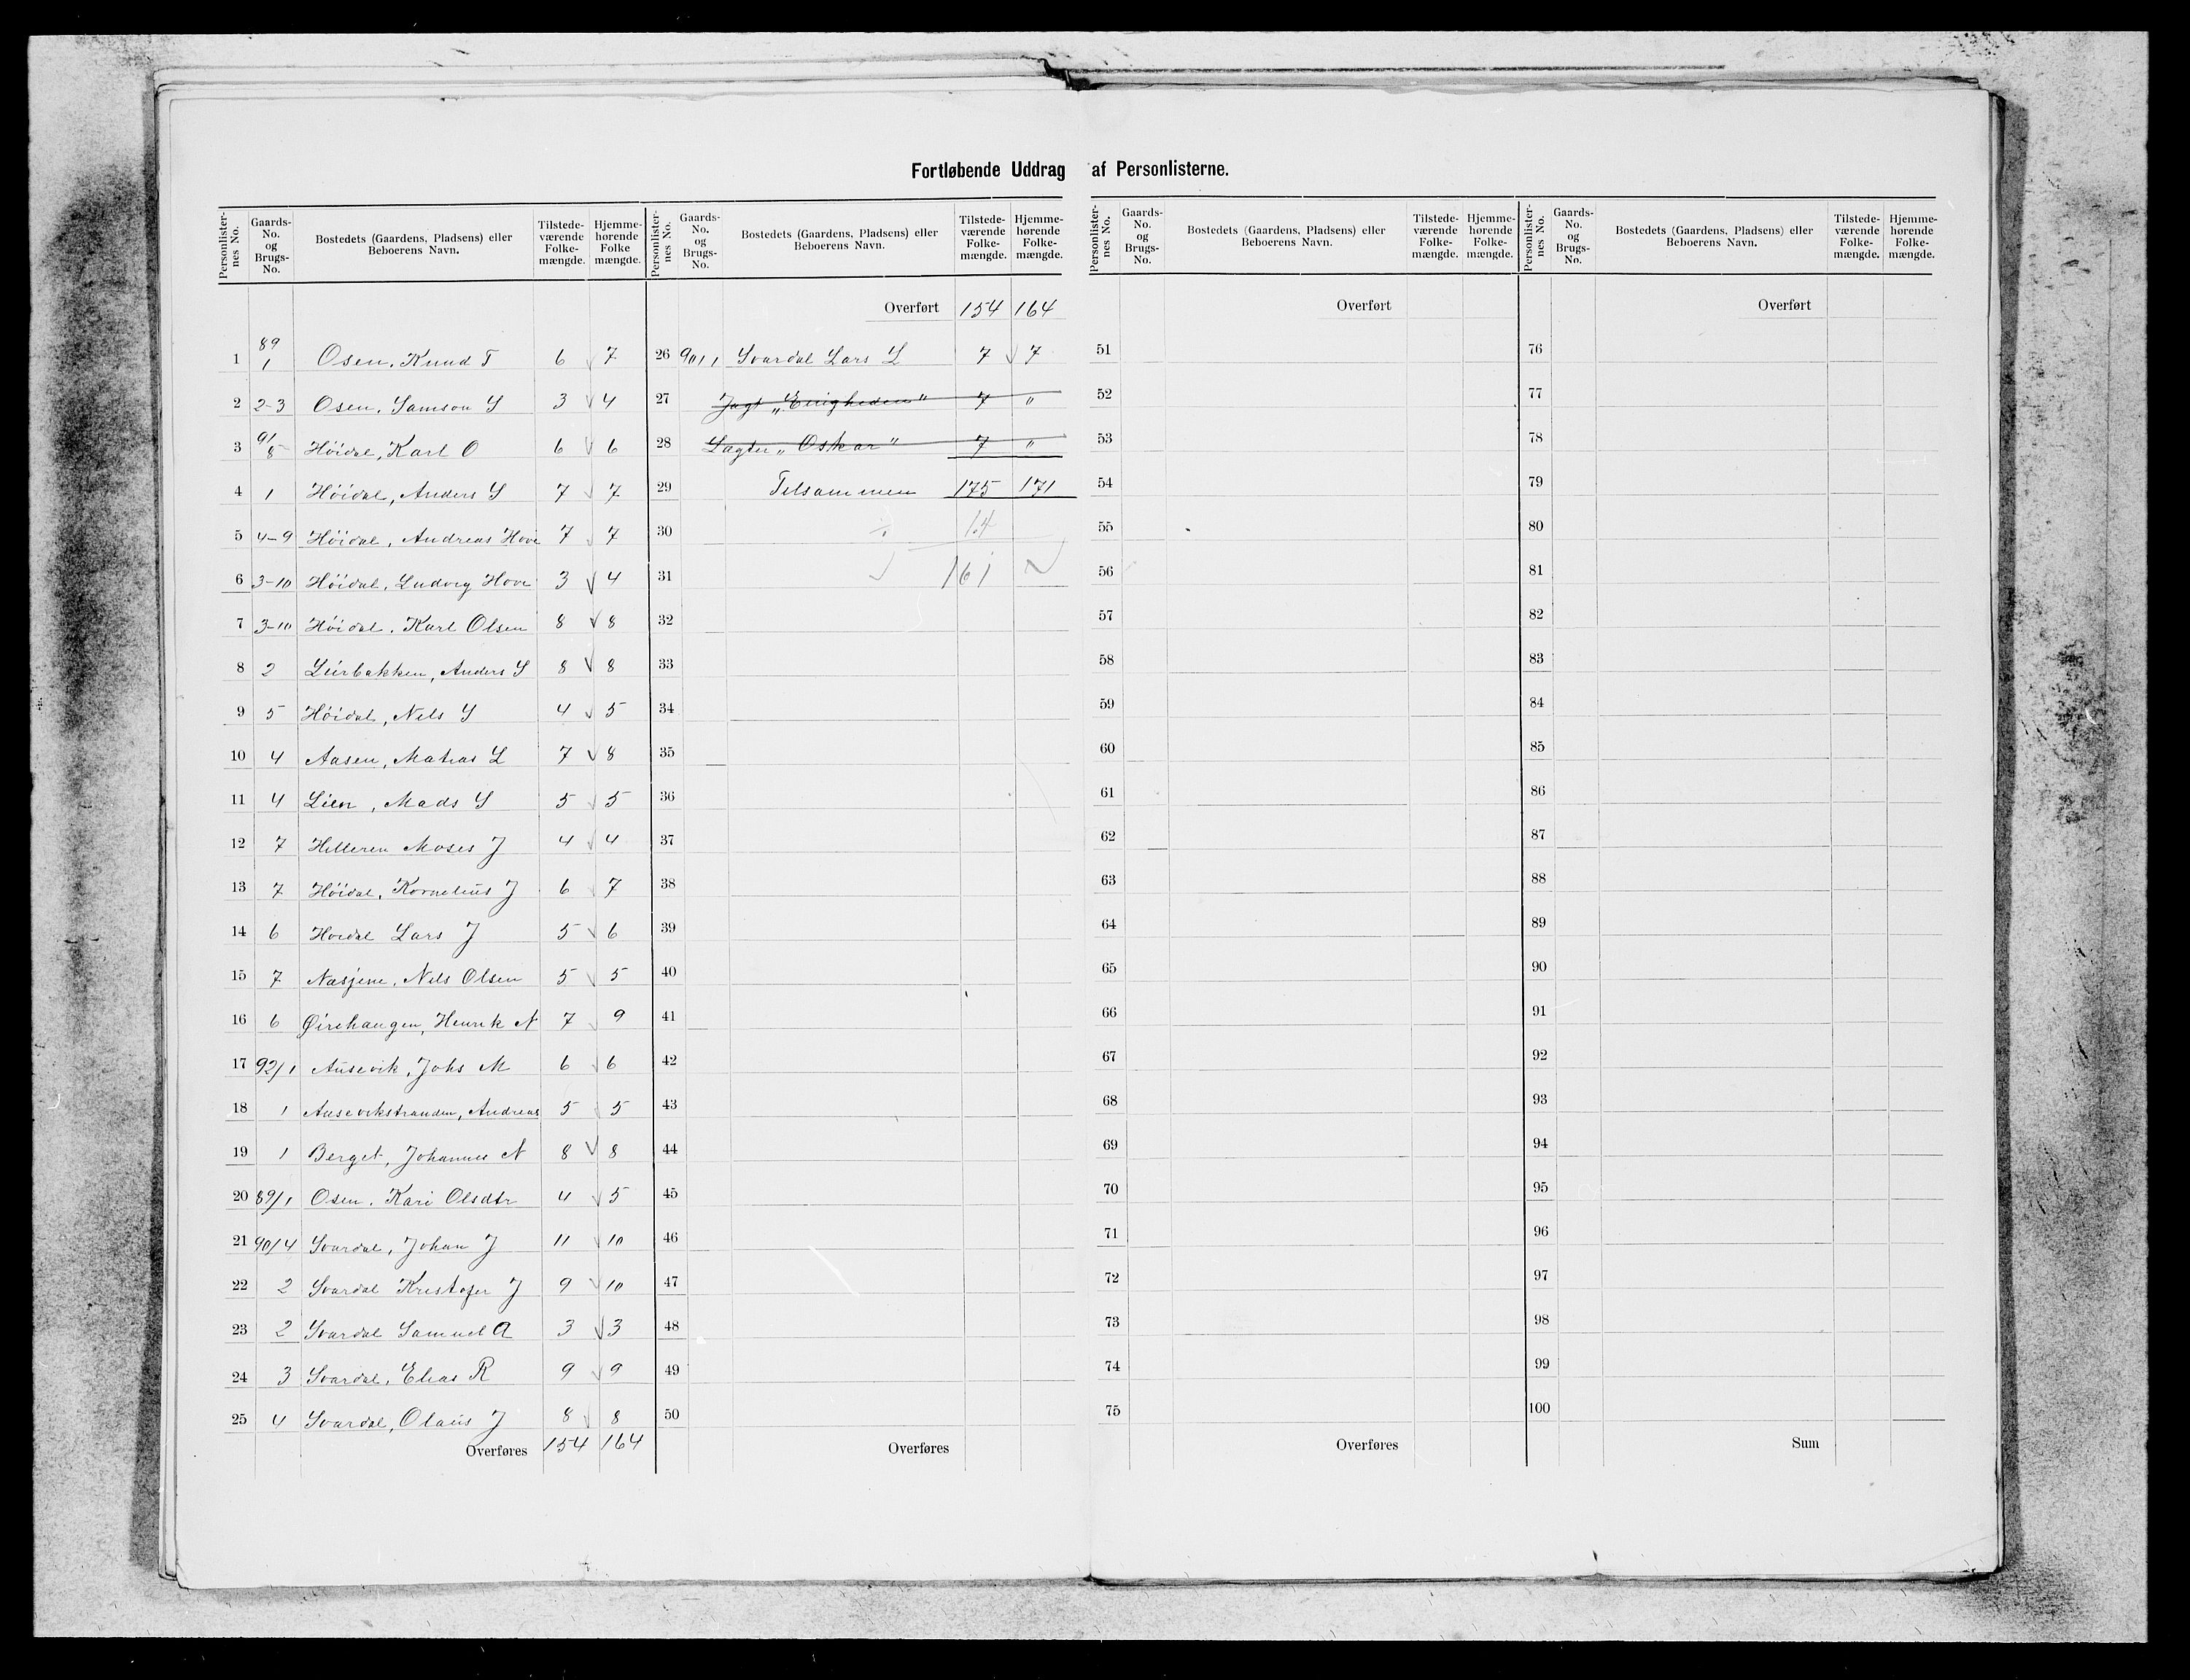 Fortløbende Uddrag af Personlisterne.
Personlister-nes No. | Gaards-No. og Brugs-No. | Bostedets (Gaardens, Pladsens) eller Beboerens Navn. | Tilstede-værende Folke-mængde. | Hjemme-hørende Folke mængde.
1 | 89 1 | Osen, Knud T | 6 | 7
2 | 2-3 | Osen, Samson S | 3 | 4
3 | 91 8 | Höidal, Karl O | 6 | 6
4 | 1 | Höidal, Anders S | 7 | 7
5 | 4-9 | Höidal, Andreas Hove | 7 | 7
6 | 3-10 | Höidal, Ludvig Hove | 3 | 4
7 | 3-10 | Höidal, Karl Olsen | 8 | 8
8 | 2 | Leirbakken, Anders S | 8 | 8
9 | 5 | Höidal, Nils S | 4 | 5
10 | 4 | Aasen, Matias L | 7 | 8
11 | 4 | Lien, Mads S | 5 | 5
12 | 7 | Helleren Moses J | 4 | 4
13 | 7 | Höidal, Kornelius J | 6 | 7
14 | 6 | Hoidal Lars J | 5 | 6
15 | 7 | Næsjene, Nils Olsen | 5 | 5
16 | 6 | Øirehaugen, Henrik N | 7 | 9
17 | 92/1 | Ausevik, Johs M | 6 | 6
18 | 1 | Ausevikstranden, Andreas | 5 | 5
19 | 1 | Berget, Johannes N | 8 | 8
20 | 89/1 | Osen, Kari Olsdtr | 4 | 5
21 | 90/4 | Svardal, Johan J | 11 | 10
22 | 2 | Svardal Kristofer J | 9 | 10
23 | 2 | Svardal Samuel A | 3 | 3
24 | 3 | Svardal, Elias R | 9 | 9
25 | 4 | Svardal, Olaus J | 8 | 8
Overføres | 154 | 164
Personlister-nes No. | Gaards-No. og Brugs-No. | Bostedets (Gaardens, Pladsens) eller Beboerens Navn. | Tilstede-værende Folke-mængde. | Hjemme-hørende Folke-mængde.
Overført | 154 | 164
26 | 90/1 | Svardal Lars L | 7 | 7
27 | Jagt „Enigheden" | 7 | "
28 | Lægter „Oskar" | 7 | "
29 | Tilsammen | 175 | 171
30 | ÷ | 14
31 | 161
32
33
34
35
36
37
38
39
40
41
42
43
44
45
46
47
48
49
50
Overføres
Personlister-nes No. | Gaards-No. og Brugs-No. | Bostedets (Gaardens, Pladsens) eller Beboerens Navn. | Tilstede-værende Folke-mængde. | Hjemme-hørende Folke-mængde.
Overført
51
52
53
54
55
56
57
58
59
60
61
62
63
64
65
66
67
68
69
70
71
72
73
74
75
Overføres
Personlister-nes No. | Gaards-No. og Brugs-No. | Bostedets (Gaardens, Pladsens) eller Beboerens Navn. | Tilstede-værende Folke-mængde. | Hjemme-hørende Folke-mængde.
Overført
76
77
78
79
80
81
82
83
84
85
86
87
88
89
90
91
92
93
94
95
96
97
98
99
100
Sum